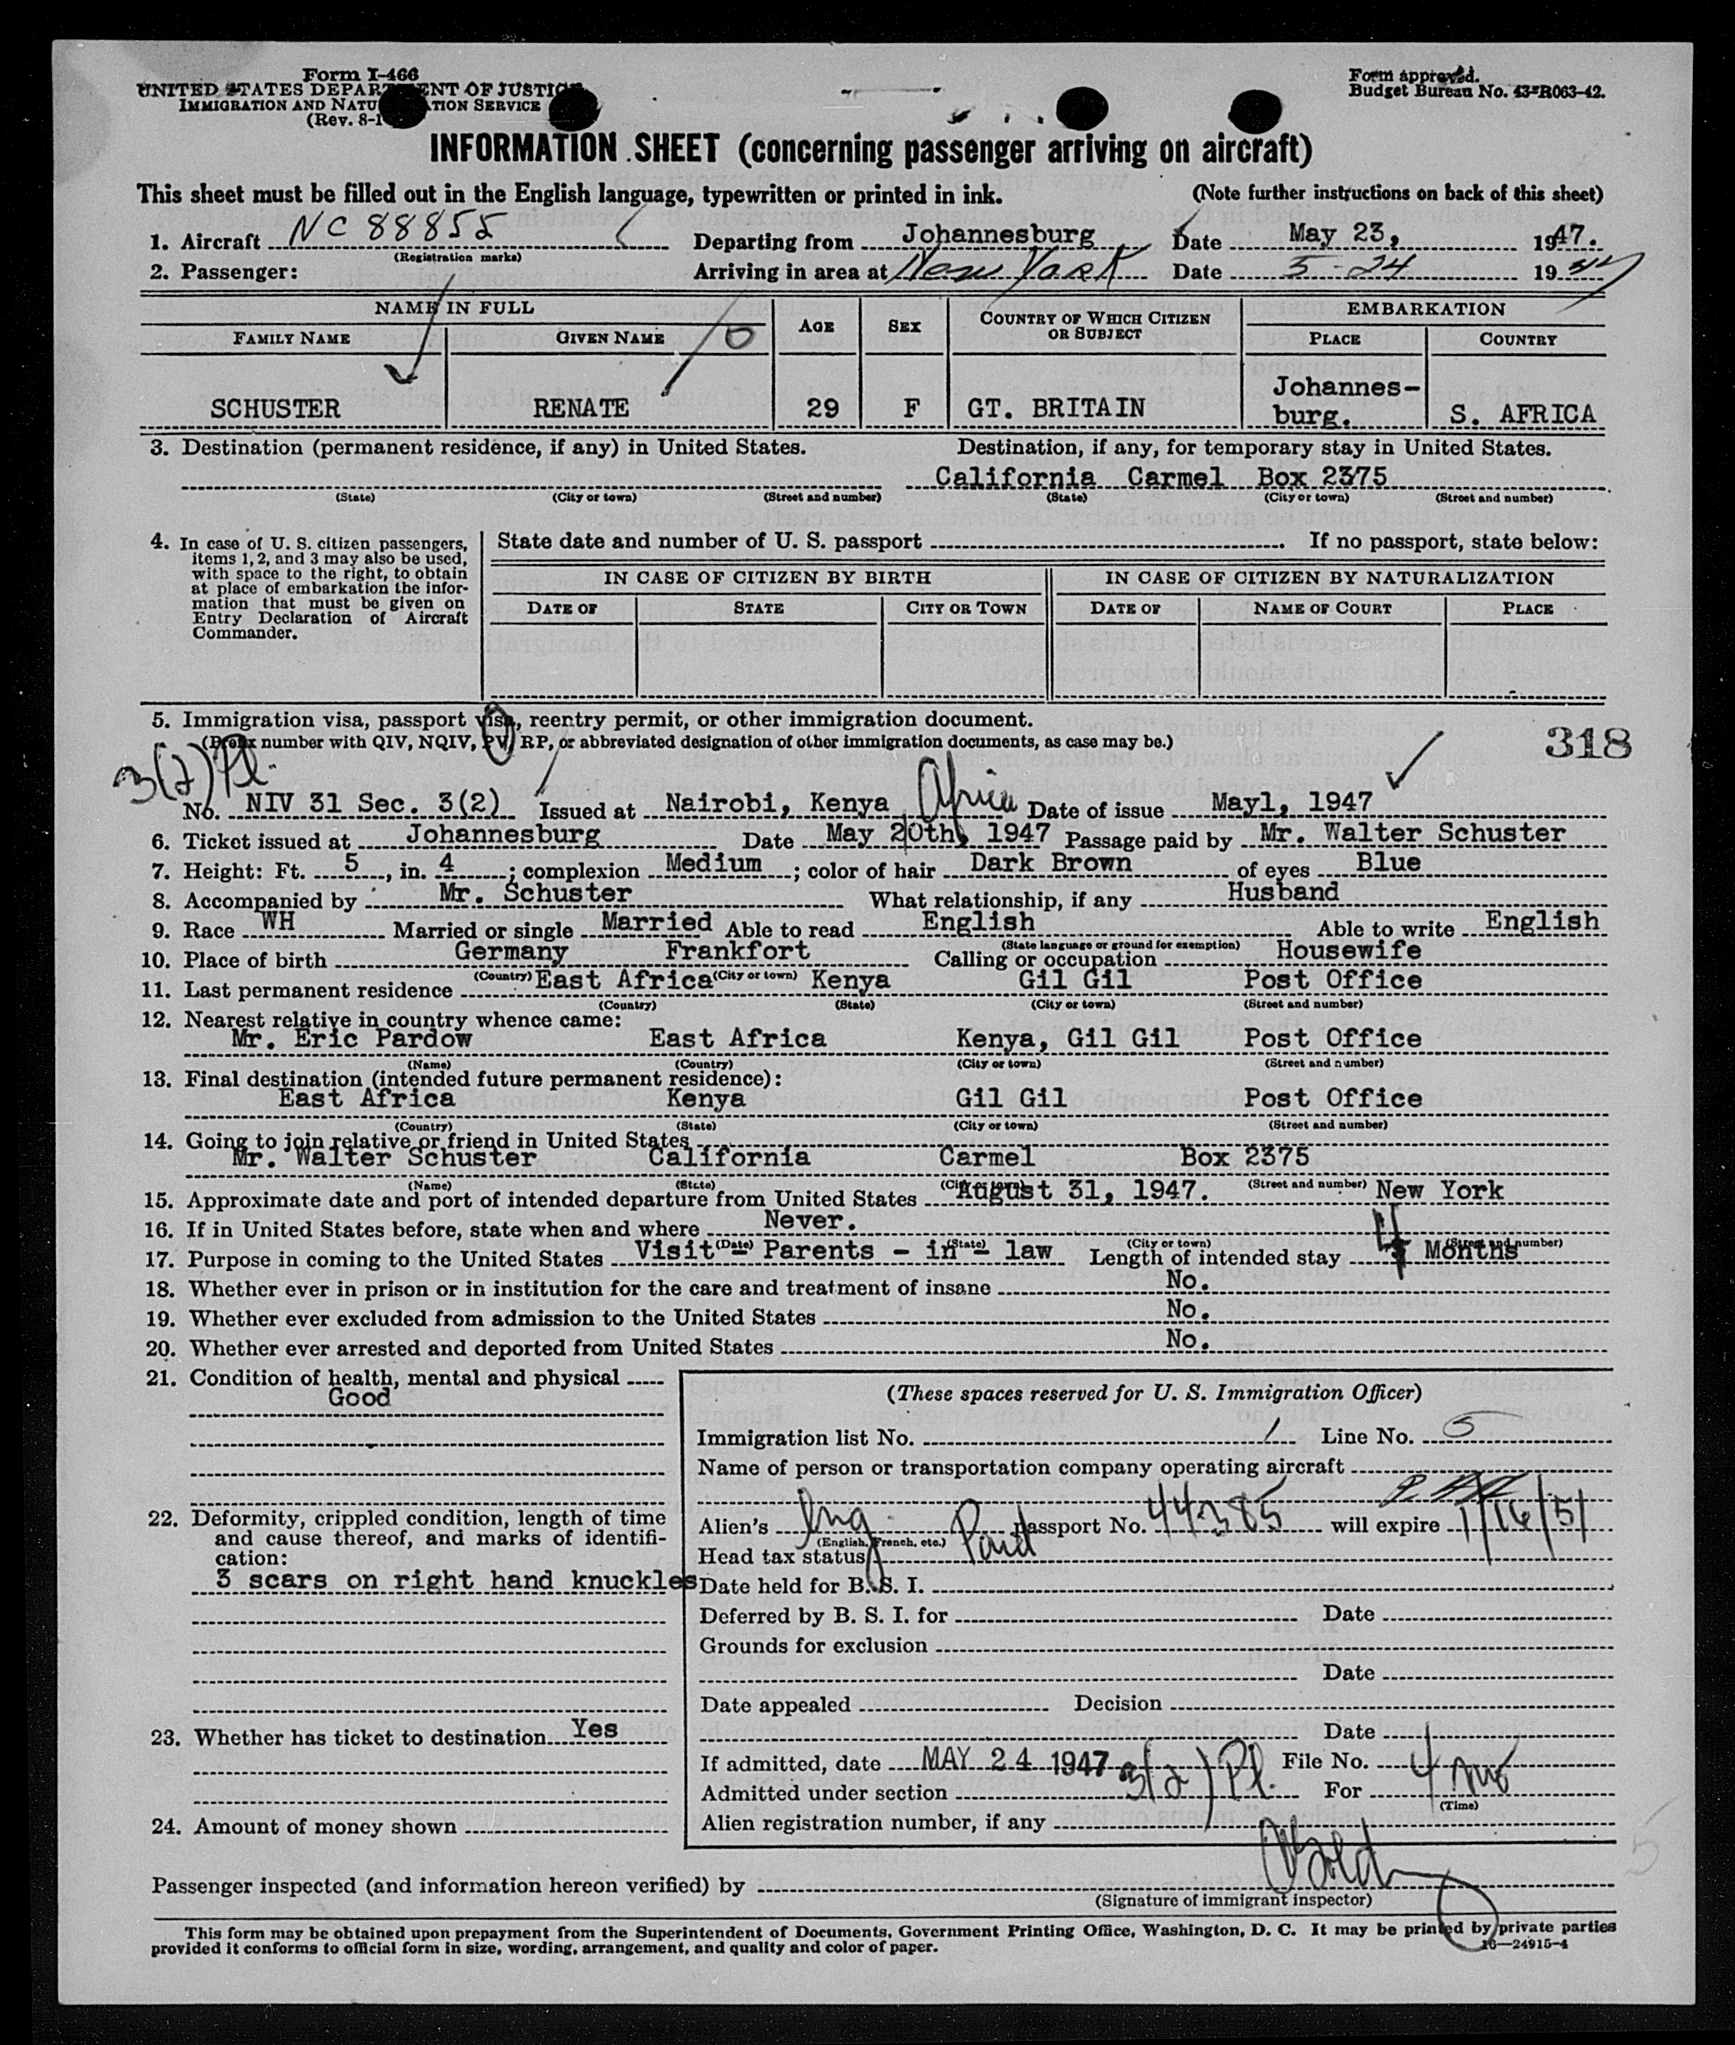 Form I-466
UNITED STATES DEPARTMENT OF JUSTICE
IMMIGRATION AND NATU TION SERVICE
(Rev. 8-1
Form approved.
Budget Bureau No. 43-R063-42.
INFORMATION SHEET (concerning passenger arriving on aircraft)
This sheet must be filled out in the English language, typewritten or printed in ink. (Note further instructions on back of this sheet)
1. Aircraft NC 88855 Departing from Johannesburg Date May 23, 1947.
(Registration marks)
2. Passenger: Arriving in area at New York Date 5-24 1947
NAME IN FULL AGE SEX COUNTRY OF WHICH CITIZEN OR SUBJECT EMBARKATION
FAMILY NAME GIVEN NAME PLACE COUNTRY
10
SCHUSTER RENATE 29 F GT. BRITAIN Johannes-burg. S. AFRICA
3. Destination (permanent residence, if any) in United States. Destination, if any, for temporary stay in United States.
California Carmel Box 2375
(State) (City or town) (Street and number) (State) (City or town) (Street and number)
4. In case of U. S. citizen passengers,
items 1, 2, and 3 may also be used,
with space to the right, to obtain
at place of embarkation the infor-
mation that must be given on
Entry Declaration of Aircraft
Commander.
State date and number of U. S. passport If no passport, state below:
IN CASE OF CITIZEN BY BIRTH IN CASE OF CITIZEN BY NATURALIZATION
DATE OF STATE CITY OR TOWN DATE OF NAME OF COURT PLACE
5. Immigration visa, passport visa, reentry permit, or other immigration document.
(Prefix number with QIV, NQIV, PV, RP, or abbreviated designation of other immigration documents, as case may be.)
318
3(2) Pl.
No. NIV 31 Sec. 3(2) Issued at Nairobi, Kenya, Africa Date of issue May1, 1947
6. Ticket issued at Johannesburg Date May 20th, 1947 Passage paid by Mr. Walter Schuster
7. Height: Ft. 5, in. 4; complexion Medium; color of hair Dark Brown of eyes Blue
8. Accompanied by Mr. Schuster What relationship, if any Husband
9. Race WH Married or single Married Able to read English Able to write English
(State language or ground for exemption)
10. Place of birth Germany Frankfort Calling or occupation Housewife
(Country) (City or town)
11. Last permanent residence East Africa Kenya Gil Gil Post Office
(Country) (State) (City or town) (Street and number)
12. Nearest relative in country whence came:
Mr. Eric Pardow East Africa Kenya, Gil Gil Post Office
(Name) (Country) (City or town) (Street and number)
13. Final destination (intended future permanent residence):
East Africa Kenya Gil Gil Post Office
(Country) (State) (City or town) (Street and number)
14. Going to join relative or friend in United States
Mr. Walter Schuster California Carmel Box 2375
(Name) (State) (City or town) (Street and number)
15. Approximate date and port of intended departure from United States August 31, 1947. New York
16. If in United States before, state when and where Never.
(Date) (State) (City or town) (Street and number)
17. Purpose in coming to the United States Visit - Parents - in - law Length of intended stay 4 Months
18. Whether ever in prison or in institution for the care and treatment of insane No.
19. Whether ever excluded from admission to the United States No.
20. Whether ever arrested and deported from United States No.
21. Condition of health, mental and physical
Good
22. Deformity, crippled condition, length of time
and cause thereof, and marks of identifi-
cation:
3 scars on right hand knuckles
23. Whether has ticket to destination Yes
24. Amount of money shown
(These spaces reserved for U. S. Immigration Officer)
Immigration list No. 1 Line No. 5
Name of person or transportation company operating aircraft
Alien's Eng passport No. 44385 will expire 1/16/51
(English, French, etc.)
Head tax status Paid
Date held for B. S. I.
Deferred by B. S. I. for Date
Grounds for exclusion
Date
Date appealed Decision
Date
If admitted, date MAY 24 1947 File No.
Admitted under section 3(2) Pl. For 4 mos
(Time)
Alien registration number, if any
5
Passenger inspected (and information hereon verified) by
(Signature of immigrant inspector)
This form may be obtained upon prepayment from the Superintendent of Documents, Government Printing Office, Washington, D. C. It may be printed by private parties
provided it conforms to official form in size, wording, arrangement, and quality and color of paper.
16—24915-4